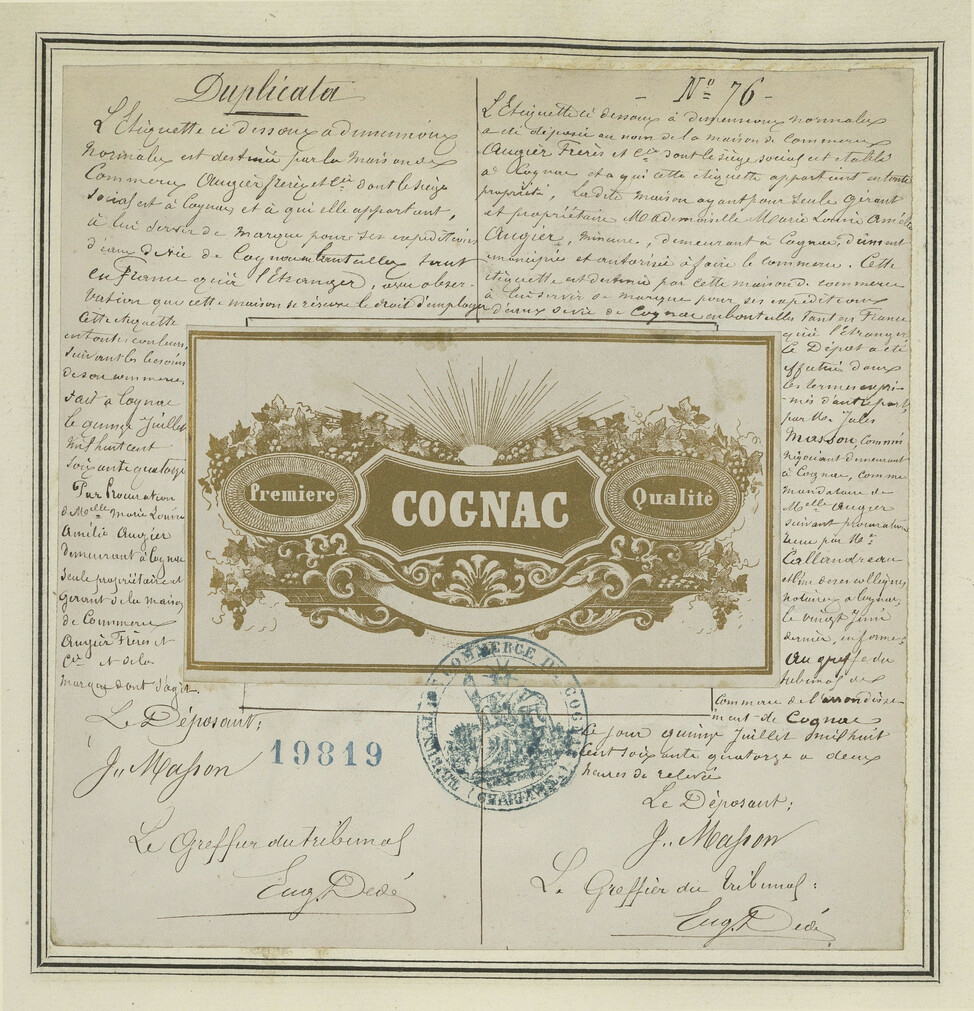 Duplicata
L'Etiquette ci dessous à dimensions
normales est destinée par la maison de
Commerce Augier frères et Cie dont le siège
social est à Cognac et à qui elle appartient,
à lui servir de marque pour ses expéditions
d'eaux de vie de Cognac en bouteilles tant
en France qu'à l'Etranger, avec obser-
vation que cette maison se réserve le droit d'employer
Cette étiquette
en toutes couleurs,
suivant les besoins
de son commerce,
Fait à Cognac
le quinze Juillet
mil huit cent
soixante quatorze
Par Procuration
de Melle Marie Louise
Amélie Augier
demeurant à Cognac
seule propriétaire et
gérant de la maison
de Commerce
Augier Frères et
Cie et de la
marque dont s'agit.
Le Déposant:
J. Masson
19819
Le Greffier du tribunal
Eug. Dedé
- No 76 -
L'Etiquette ci dessous à dimensions normales
a été déposée au nom de la maison de Commerce
Augier Frères et Cie dont le siège social est établi
à Cognac et à qui cette étiquette appartient en toute
propriété, La dite maison ayant pour seule gérant
et propriétaire Mademoiselle Marie Louise Amélie
Augier, mineure, demeurant à Cognac, dûment
émancipée et autorisée à faire le commerce. Cette
étiquette est destinée par cette maison de commerce
à lui servir de marque pour ses expéditions
d'eaux de vie de Cognac en bouteilles tant en France
qu'à l'Etranger,
Le Dépôt a été
effectué dans
les termes expri-
més d'autre part,
par Mr Jules
Masson, commis
négociant demeurant
à Cognac, comme
mandataire de
Melle Augier
suivant procuration
reçue par Me
Callandreau
et l'un de ses collègues
notaires à Cognac,
le vingt Juin
dernier, informe,
Au greffe du
tribunal de
Commerce de l'arrondisse-
ment de Cognac
Le jour quinze Juillet mil huit
cent soixante quatorze à deux
heures de relevée
Le Déposant:
J. Masson
Le Greffier du tribunal:
Eug. Dedé
Premiere
COGNAC
Qualité
TRIBUNAL DE COMMERCE DE COGNAC
(CHARENTE)